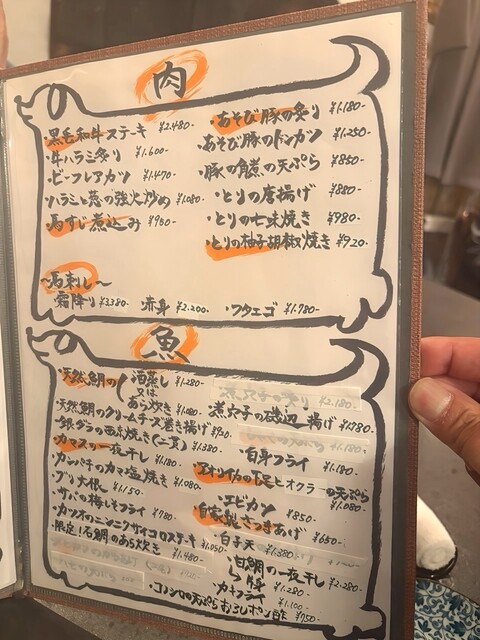 肉
・黒毛和牛ステーキ ¥2.480-
・牛ハラミ炙り ¥1.600-
・ビーフレアカツ ¥1.470-
・ハラミと葱の強火炒め ¥1.080-
・馬すじ煮込み ¥950-
・あそび豚の炙り ¥1.180-
あそび豚のトンカツ ¥1.250-
・豚の角煮の天ぷら ¥850-
・とりの唐揚げ ¥880-
・とりの七味焼き ¥980-
・とりの柚子胡椒焼き ¥920-
〜馬刺し〜
霜降り ¥3380- 赤身 ¥2.200- ・フタエゴ ¥1.780-
魚
・天然鯛の(酒蒸し ¥1.280-
又は
あら炊き ¥1.180-
天然鯛のクリームチーズ巻き揚げ ¥930-
・銀ダラの西京焼き(二貫) ¥1.380-
・カマスの一夜干し ¥1.180-
・カンパチのカマ塩焼き ¥1.080-
・ブリ大根 ¥1.150-
・サバの梅しそフライ ¥780-
・カツオのニンニクサイコロステーキ ¥1.050-
・限定!石鯛のあら炊き ¥1.480-
¥2.180-
・煮穴子の磯辺揚げ ¥1.480-
¥1.180-
・白身フライ ¥1.180-
・アオリイカの下足とオクラの天ぷら ¥1.080-
・エビカツ ¥850-
・自家製さつまあげ ¥650-
・白子天 ¥1.380-
・甘鯛の一夜干し ¥2.280-
¥1.280-
・カキフライ ¥1.100-
・コノシロの天ぷらおろしポン酢 ¥750-